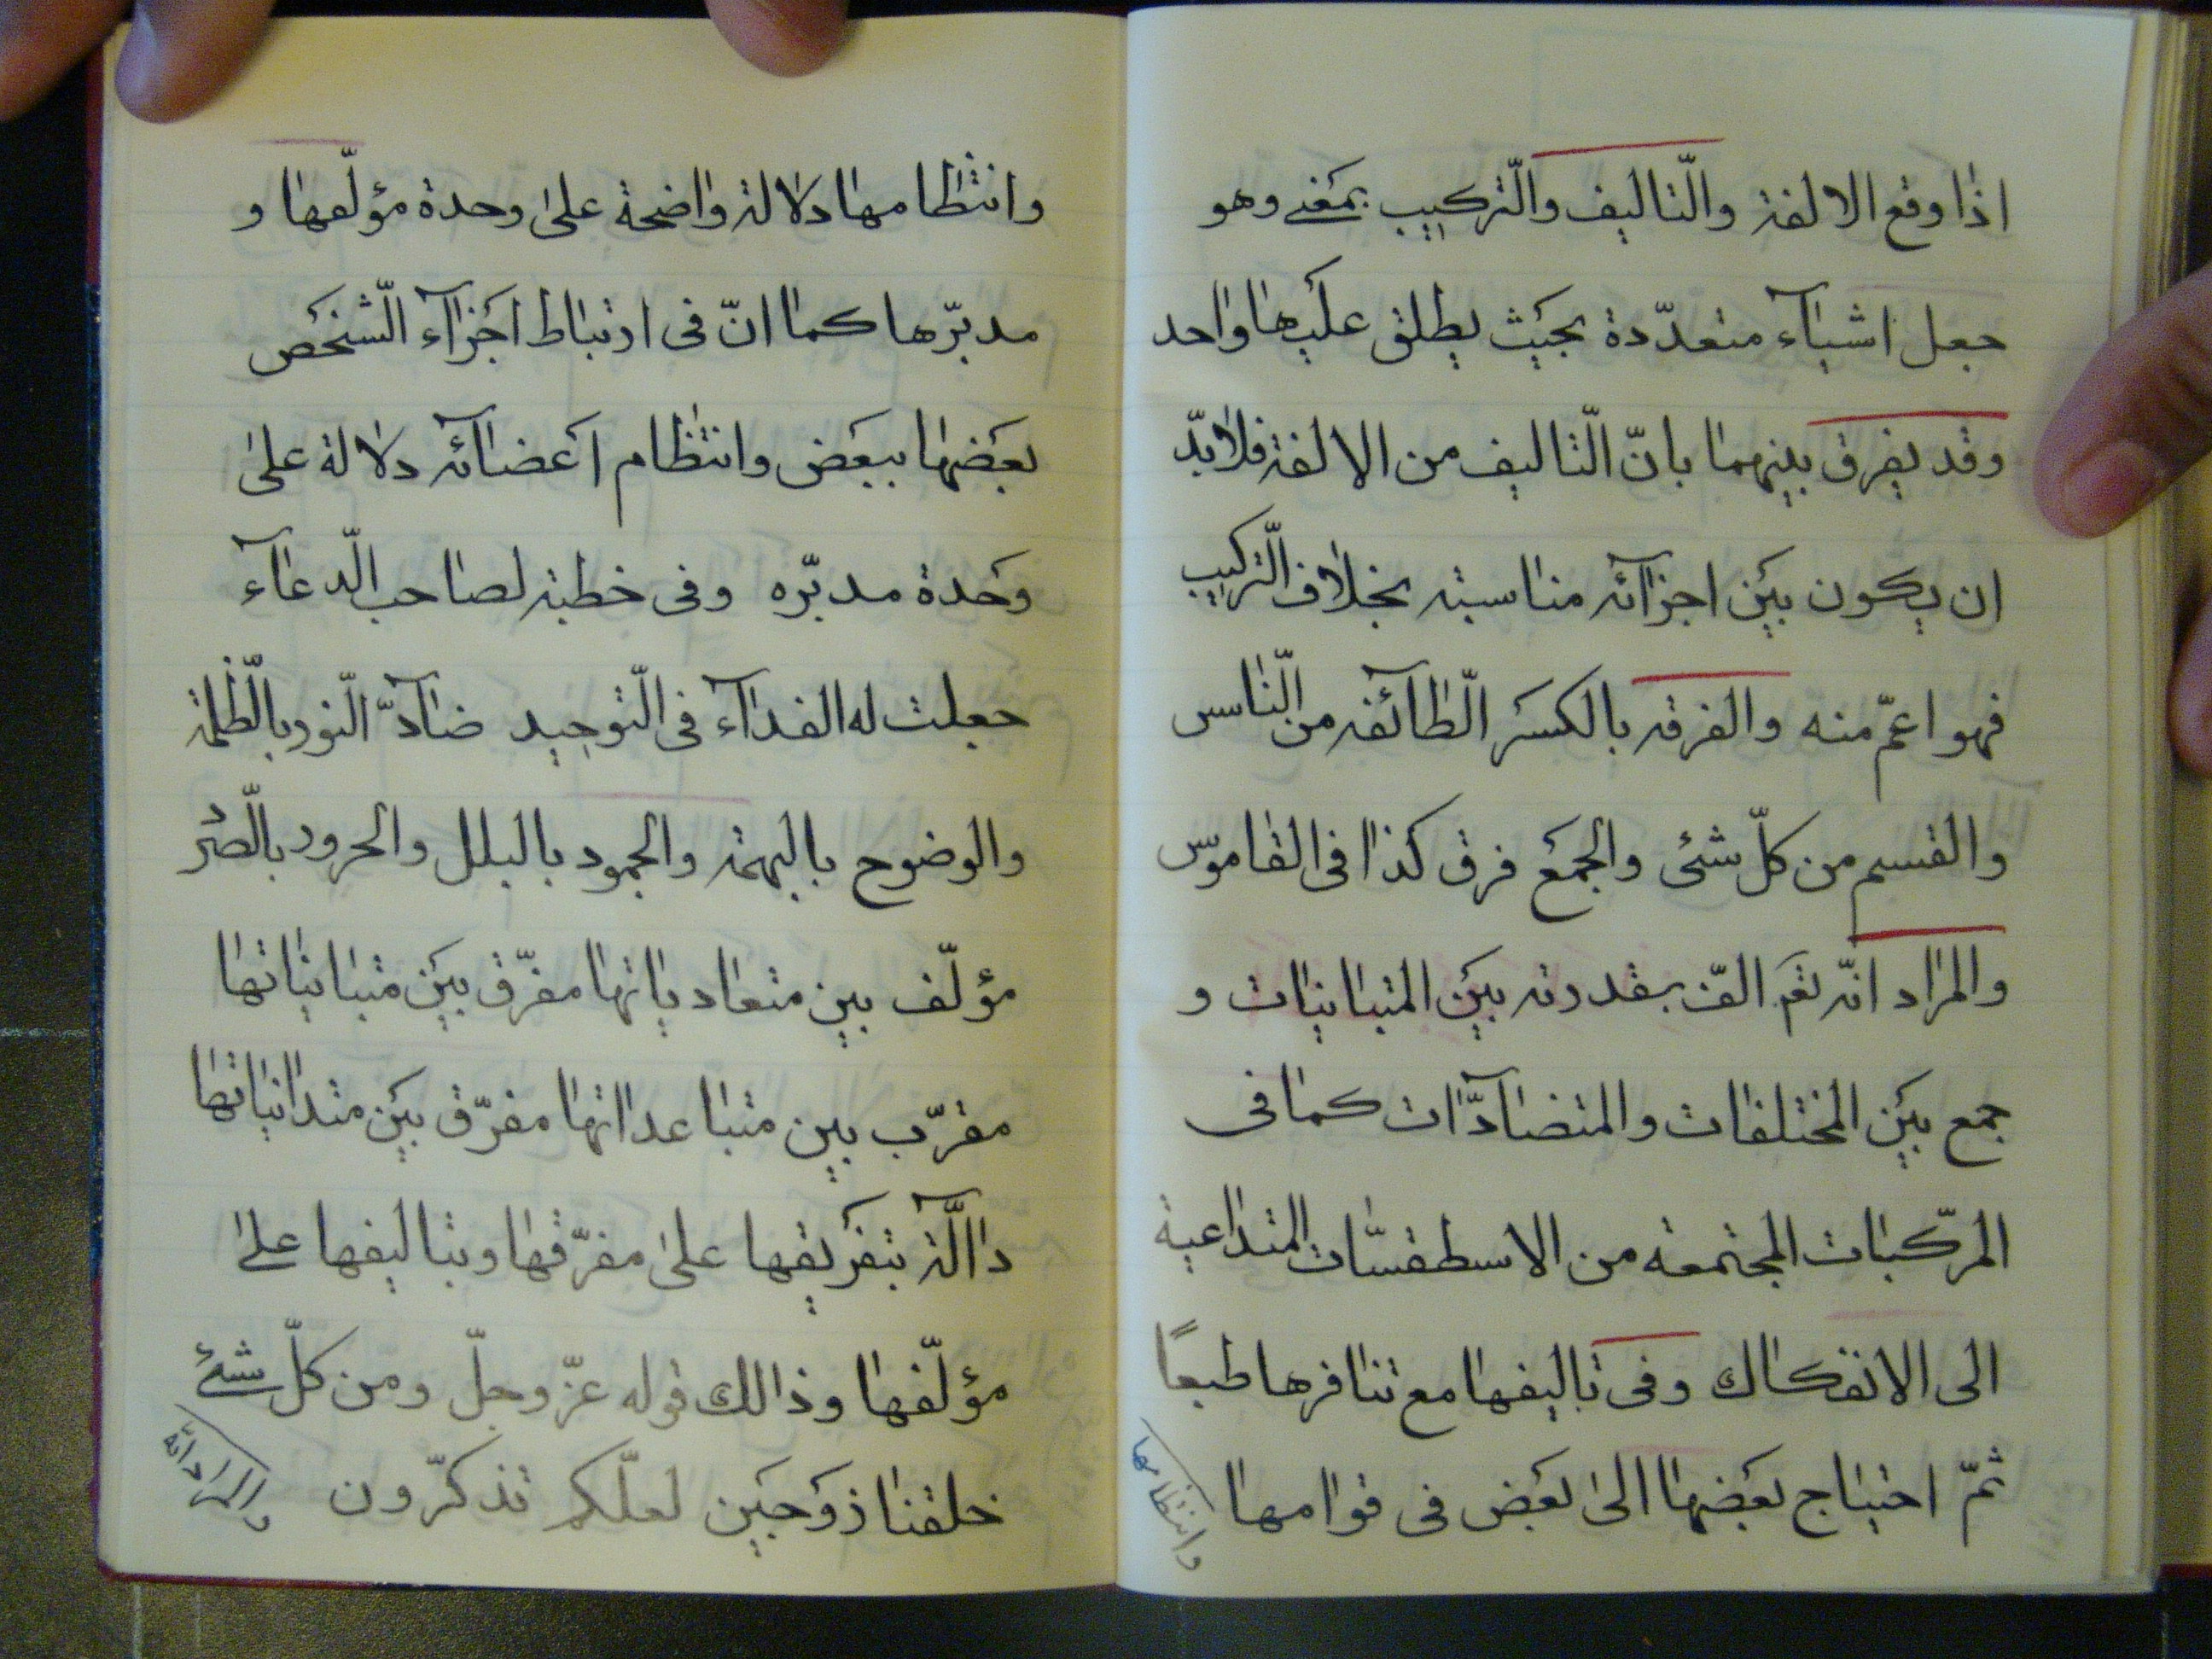 اذا وقع الالفة والتّاليف والتّركيب بمعنے وهو
جعل اشيآء متعدّدة بحَيث يطلق عليها واحد
وقد يفرق بينهما بانّ التّاليف من الالفة فلابدّ
ان يكون بَين اجزآئه مناسبة بخلاف التّركيب
فهو اعمّ منه والفرقة بالكسَر الطّآئفة من النّاس
والقسم من كلّ شئ والجمَع فرق كذا فى القاموس
والمراد انّه تعَ الّف بقدرته بيَن المتباينات و
جمع بيَن المختلفات والمتضآدّات كما فى
المركّبات المجتمعة من الاسطقسّات المتداعية
الى الانفكاك وفى تاليفها مع تنافرها طبعاً
ثمّ احتياج بعَضها الىٰ بعَض فى قوامها
وانتظامها
وانتظامها دلالة واضحة علىٰ وحدة مؤلّفها و
مدبّرها كما انّ فى ارتباط اجَزآء الشّخَص
بعَضها ببعَض وانتظام اعَضآئه دلالة علىٰ
وحَدة مدبّره وفى خطبة لصاحب الدّعآء
جعلت له الفدآء فى التّوحيد ضآدّ النّور بالظّلمة
والوضوح بالبهمة والجمود بالبلل والحرور بالصّرد
مؤلّف بين متعادياتها مفرّق بيَن متبايناتها
مقرّب بين متباعداتها مفرّق بيَن متدانياتها
دآلّة بتفرَيقها علىٰ مفرّقها وبتاليفها علىٰ
مؤلّفها وذالك قوله عزّ وجلّ ومن كلّ شئ
خلقنا زوَجَين لعلّكم تذكّرون
والمراد انّه